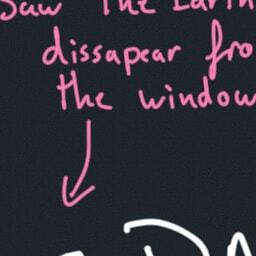 Saw The Earth
dissapear fro
the window